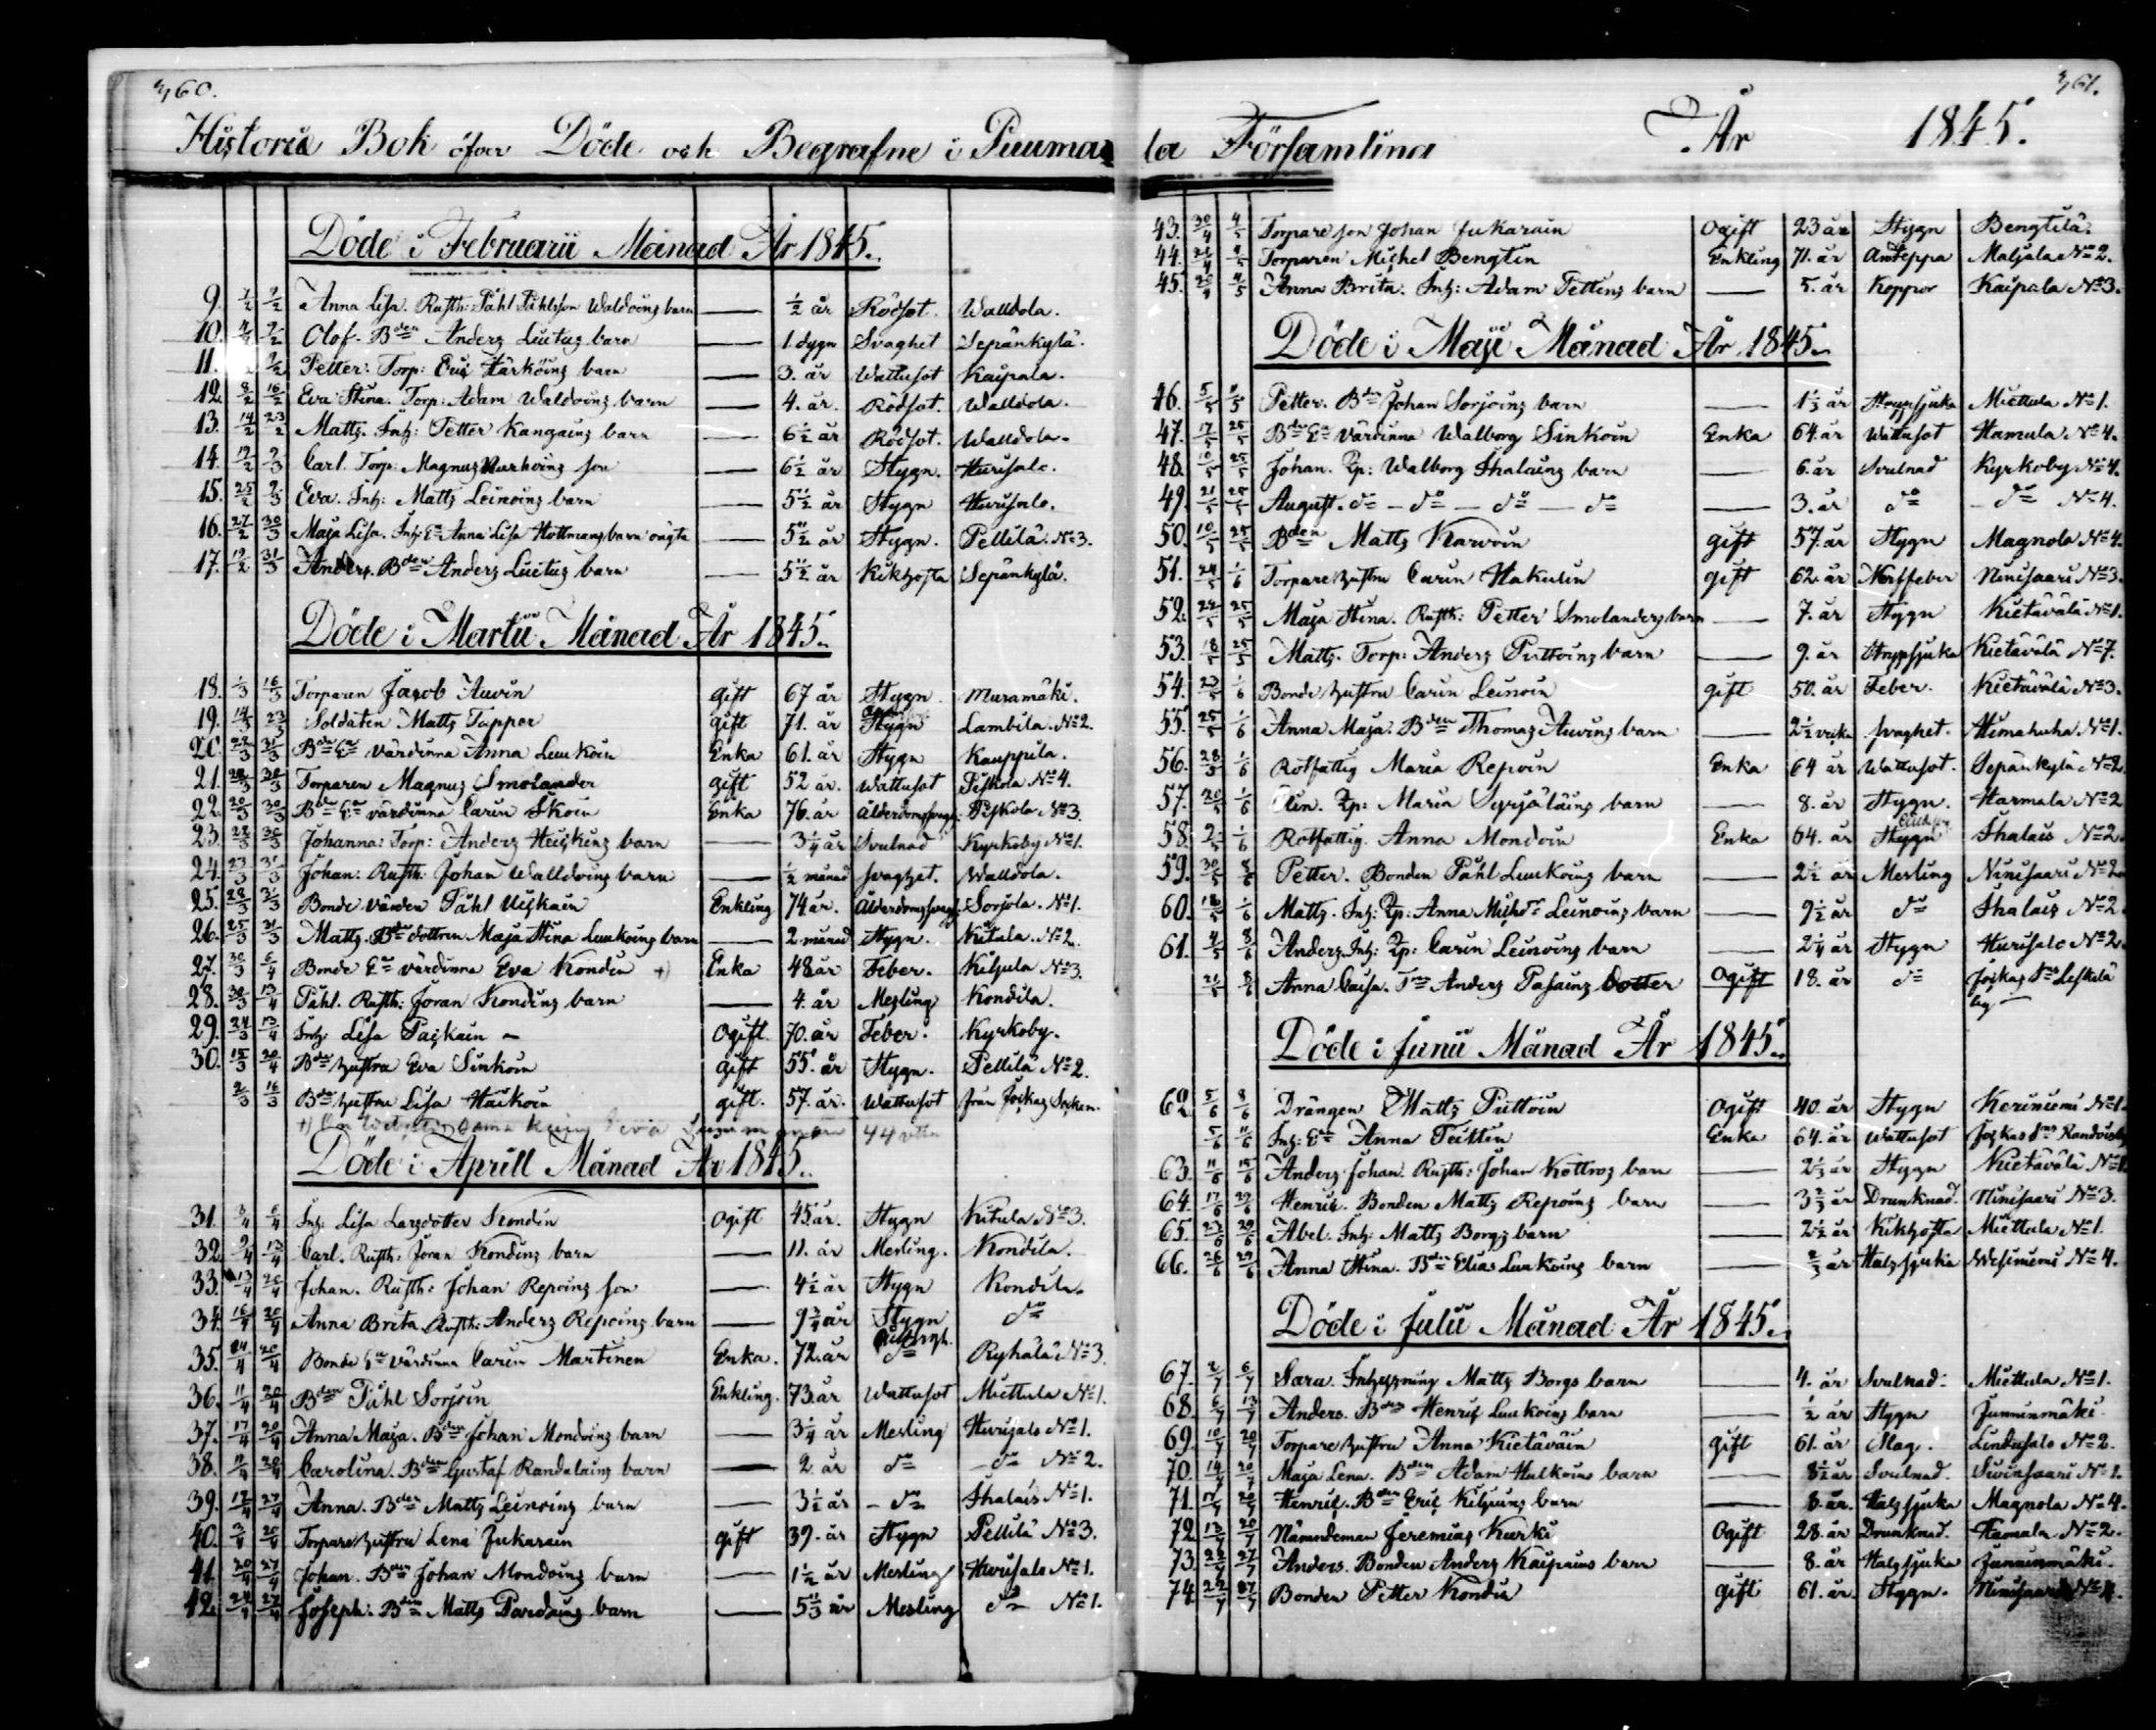 360.
Historie Bok öfver Döde och Begrafne i Puuma
Döde i Februarii Månad År 1845.
9. 1/2 2/2 Anna Lisa. Rusth: Påhl Påhlsson Waldoins barn — 1/2 år Rödsot. Walldola.
10. 4/2 9/2 Olof. Bden Anders Luitus barn — 1. dygn Svaghet Sepänkylä.
11. 9/2 Petter. Torp: Eric Härköins barn — 3. år Wattusot Kaipala.
12. 8/2 16/2 Eva Stina. Torp: Adam Waldoins barn — 4. år. Rödsot. Walldola.
13. 14/2 23/2 Matts. Inh: Petter Kangains barn — 6 1/2 år Rödsot. Walldola.
14. 19/2 2/3 Carl. Torp: Magnus Hurkoins son — 6 1/2 år Stygn. Hurisalo.
15. 25/2 2/3 Eva. Inh: Matts Leinoins barn — 5 1/2 år Stygn Hurisalo.
16. 27/2 30/3 Maja Lisa. Inh: Ea Anna Lisa Hottmans barn oägta — 5 1/2 år Stygn. Pellilä. No 3.
17. 19/2 31/3 Anders. Bden Anders Luitus barn — 5 1/2 år Kikhosta Sepänkylä.
Döde i Martii Månad År 1845.
18. 1/3 16/3 Torparen Jacob Auvin gift 67 år Stygn. Muramäki.
19. 14/3 23/3 Soldaten Matts Tapper gift 71. år Stygn Lambila. No 2.
20. 22/3 31/3 Bde Ea värdinna Anna Luukoin Enka 61. år Stygn Kauppila.
21. 20/3 30/3 Torparen Magnus Smolander gift 52 år. Wattusot Piskola No 4.
22. 20/3 30/3 Bde Ea värdinna Carin Ikoin Enka 76. år Ålderdomssvagh: Piskola No 3.
23. 22/3 30/3 Johanna: Torp: Anders Heiskins barn — 3 1/4 år Svulnad Kyrkoby No 1.
24. 23/3 31/3 Johan: Rusth: Johan Walldoins barn — 1/2 månad svaghet. Walldola.
25. 28/3 31/3 Bonde värden Påhl Uiskain Enkling 74 år. Ålderdomssvagh: Sorjola. No 1.
26. 25/3 31/3 Matts. Bde dottren Maja Stina Luukoins barn — 2. månad Stygn. Kitula. No 2.
27. 30/3 6/4 Bonde Ea värdinna Eva Kondin +) Enka 48 år Feber. Kiljula No 3.
28. 30/3 13/4 Påhl. Rusth: Jöran Kondins barn — 4. år Mesling Kondila.
29. 24/3 13/4 Inh: Lisa Paskain — Ogift. 70. år Feber. Kyrkoby.
30. 15/3 20/4 Bde hustru Eva Sinkoin gift 55. år Stygn. Pellilä No 2.
2/3 16/3 Bde hustru Lisa Häikoin gift. 57. år. Wattusot från Jockas Socken.
Döde i Aprill Månad År 1845.
31. 3/4 6/4 Inh: Lisa Larsdotter Kondin Ogift 45 år. Stygn Kitula No 3.
32. 9/4 13/4 Carl. Rusth: Jöran Kondins barn — 11. år Mesling. Kondila.
33. 13/4 20/4 Johan. Rusth: Johan Repoins son — 4 1/2 år Stygn Kondila.
34. 16/4 20/4 Anna Brita. Rusth: Anders Repoins barn — 9 3/4 år Stygn do
35. 14/4 20/4 Bonde Ea värdinna Carin Martinen Enka. 72. år do Ryhälä No 3.
36. 11/4 20/4 Bden Påhl Sorjoin Enkling. 73. år Wattusot Miettula No 1.
37. 17/4 20/4 Anna Maja. Bden Johan Mondoins barn — 3 1/4 år Mesling Hurisalo No 1.
38. 11/4 20/4 Carolina. Bden Gustaf Randalains barn — 2. år do do No 2.
39. 17/4 27/4 Anna. Bden Matts Leinoins barn — 3 1/2 år do Ihalais No 1.
40. 3/4 20/4 Torpare hustru Lena Jukarain gift 39. år Stygn Pellilä No 3.
41. 20/4 27/4 Johan. Bden Johan Mondoins barn — 1 1/2 år Mesling Hurisalo No 1.
42. 24/4 27/4 Joseph. Bden Matts Pardains barn — 5 11/3 år Mesling do No 1.
361.
la Församling År 1845.
43. 30/4 4/5 Torpare son Johan Jukarain Ogift 23 år Stygn Bengtilä.
44. 26/4 4/5 Torparen Michel Bengtin Enkling 71. år Andteppa Maljala No 2.
45. 26/4 4/5 Anna Brita. Inh: Adam Pettins barn — 5. år Koppor Kaipala No 3.
Döde i Maji Månad År 1845.
46. 5/5 11/5 Petter. Bden Johan Sorjoins barn — 1 1/3 år Strypsjuka Miettula No 1.
47. 17/5 25/5 Bde Ea värdinna Walborg Sinkoin Enka 64. år Wattusot Hamula No 4.
48. 10/5 25/5 Johan. Qp: Walborg Ihalains barn — 6. år Svulnad Kyrkoby No 4.
49. 21/5 25/5 August. do — do — do — do — 3. år do do No 4.
50. 10/5 25/5 Bden Matts Karvoin gift 57. år Stygn Magnola No 4.
51. 24/5 1/6 Torpare hustru Carin Hakulin gift 62. år Nerffeber Niinisaari No 3.
52. 22/5 25/5 Maja Stina. Rusth: Petter Smolanders barn — 7. år Stygn Kietävälä No 1.
53. 18/5 25/5 Matts. Torp: Anders Puttoins barn — 9. år Strypsjuka Kietävälä No 7.
54. 23/5 1/6 Bonde hustru Carin Leinoin gift 50. år Feber. Kietävälä No 3.
55. 25/5 1/6 Anna Maja. Bden Thomas Auvins barn — 2 1/2 veckn svaghet. Himahuha No 1.
56. 28/5 1/6 Rotfattig Maria Repoin Enka 64 år Wattusot. Sepänkylä No 2
57. 20/5 1/6 Elin. Qp: Maria Syrjäläins barn — 8. år Stygn. Harmala No 2
58. 1/6 Rotfattig. Anna Mondoin Enka 64. år Stygn Ihalais No 2.
59. 30/5 8/6 Petter. Bonden Påhl Luukoins barn — 2 1/2 år Mesling Niinisaari No 2
60. 18/5 1/6 Matts. Inh: Qp: Anna Michdr Leinoins barn — 9 1/2 år do Ihalais No 2
61. 4/5 8/6 Anders. Inh: Qp: Carin Leinoins barn — 2 1/4 år Stygn Hurisalo No 2
21/5 8/6 Anna Caisa. Tren Anders Pasains Dotter Ogift 18. år do Jockas Sns Leskelä
by
Döde i Junii Månad År 1845.
62 5/6 8/6 Drängen Matts Puttoin Ogift 40. år Stygn Keriniemi No 1.
5/6 11/6 Inh: Ea Anna Teittin Enka 64. år Wattusot Jockas Sns
63. 11/6 15/6 Anders Johan. Rusth: Johan Kottros barn — 2 1/3 år Stygn Kietävälä No 1
64. 17/6 29/6 Henric. Bonden Matts Repoins barn — 3 2/3 år Drunknad. Niinisaari No 3.
65. 23/6 29/6 Abel. Inh: Matts Borgs barn — 2 1/2 år Kikhosta Miettula No 1.
66. 26/6 29/6 Anna Stina. Bden Elias Luukoins barn — 2/3 år Halssjuka Wesiniemi No 4.
Döde i Julii Månad År 1845.
67. 2/7 6/7 Sara. Inhysning Matts Borgs barn — 4. år Svulnad. Miettula No 1.
68. 6/7 13/7 Anders. Bden Henric Luukoins barn — 1/2 år Stygn Junninmäki
69. 10/7 20/7 Torpare hustru Anna Kietäväin gift 61. år Mag. Lindusalo No 2.
70. 14/7 20/7 Maja Lena. Bden Adam Hulkoins barn — 8 1/2 år Svulnad. Siiinsaari No 1.
71. 17/7 20/7 Henric. Bden Eric Kiljuins barn — 8. år. Halssjuka Magnola No 4.
72. 13/7 20/7 Nämndeman Jeremias Kurki Ogift 28. år Drunknad. Hamala No 2.
73. 22/7 27/7 Anders. Bonden Anders Kaipains barn — 8. år Halssjuka Junninmäki.
74. 22/7 27/7 Bonden Petter Kondin gift 61. år. Stygn. Niinisaari No